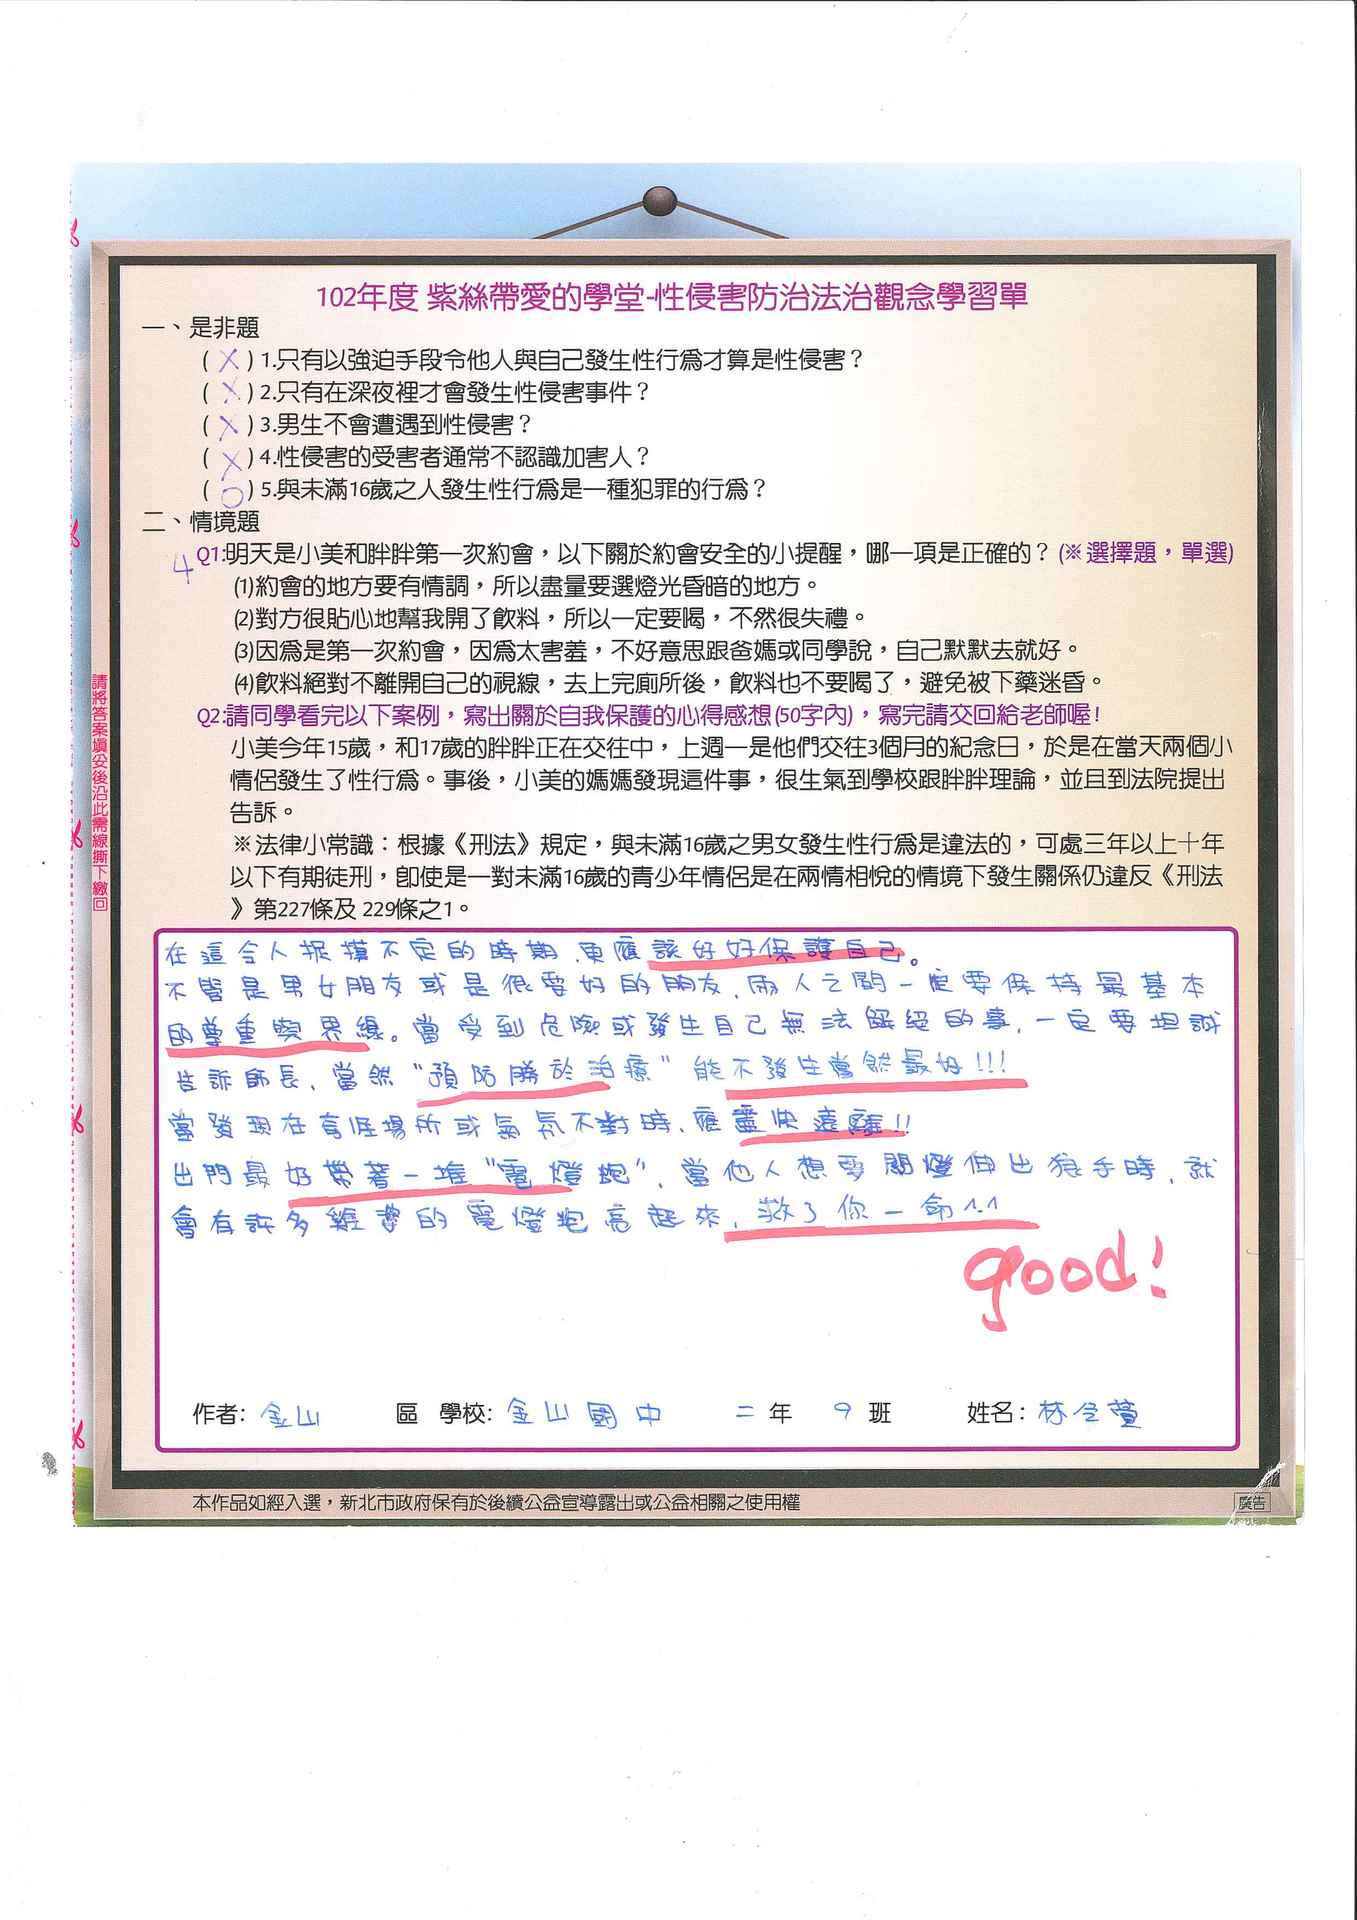 102年度 紫絲帶愛的學堂-性侵害防治法治觀念學習單
一、是非題
(X)1.只有以強迫手段令他人與自己發生性行為才算是性侵害？
(X)2.只有在深夜裡才會發生性侵害事件？
(X)3.男生不會遭遇到性侵害？
(X)4.性侵害的受害者通常不認識加害人？
(O)5.與未滿16歲之人發生性行為是一種犯罪的行為？
二、情境題
4 Q1:明天是小美和胖胖第一次約會，以下關於約會安全的小提醒，哪一項是正確的？(※選擇題，單選)
(1)約會的地方要有情調，所以盡量要選燈光昏暗的地方。
(2)對方很貼心地幫我開了飲料，所以一定要喝，不然很失禮。
(3)因為是第一次約會，因為太害羞，不好意思跟爸媽或同學說，自己默默去就好。
(4)飲料絕對不離開自己的視線，去上完廁所後，飲料也不要喝了，避免被下藥迷昏。
Q2:請同學看完以下案例，寫出關於自我保護的心得感想(50字內)，寫完請交回給老師喔!
小美今年15歲，和17歲的胖胖正在交往中，上週一是他們交往3個月的紀念日，於是在當天兩個小
情侶發生了性行為。事後，小美的媽媽發現這件事，很生氣到學校跟胖胖理論，並且到法院提出
告訴。
※法律小常識：根據《刑法》規定，與未滿16歲之男女發生性行為是違法的，可處三年以上十年
以下有期徒刑，即使是一對未滿16歲的青少年情侶是在兩情相悅的情境下發生關係仍違反《刑法
》第227條及 229條之1。
請將答案填妥後沿此需線撕下繳回
在這令人捉摸不定的時期，更應該好好保護自己。
不管是男女朋友或是很要好的朋友，兩人之間一定要保持最基本
的尊重與界線。當受到危險或發生自己無法解絕的事，一定要坦誠
告訴師長，當然“預防勝於治療”能不發生當然最好!!!
當發現在場所或氣氛不對時，應盡快遠離!!
出門最好帶著一堆“電燈炮”，當他人想要關燈伸出狼手時，就
會有許多的電燈炮亮起來，救了你一命^.^
good!
作者: 金山 區 學校: 金山國中 二年 9班 姓名: 林令萱
本作品如經入選，新北市政府保有於後續公益宣導露出或公益相關之使用權
廣告